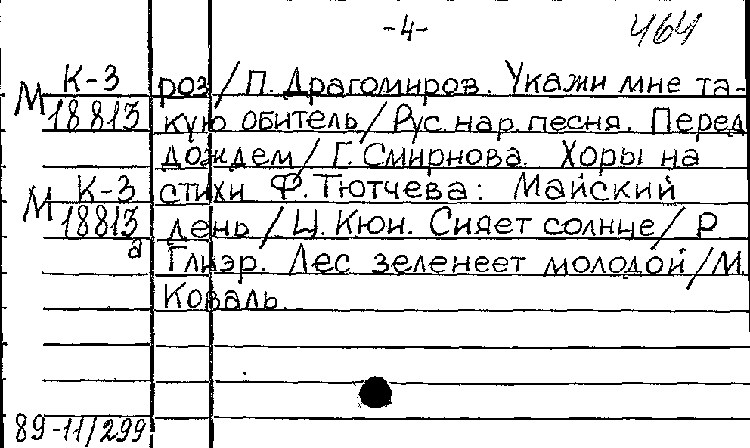 -4- 464
М К-3 роз/П. Драгомиров. Укажи мне та-
18813 кую обитель/Рус. нар. песня. Перед
дождем/Г. Смирнова. Хоры на
М К-3 стихи Ф. Тютчева: Майский
18813 день/Ц. Кюи. Сияет солнце/Р
а Глиэр. Лес зеленеет молодой/М.
Коваль.
89-11/299